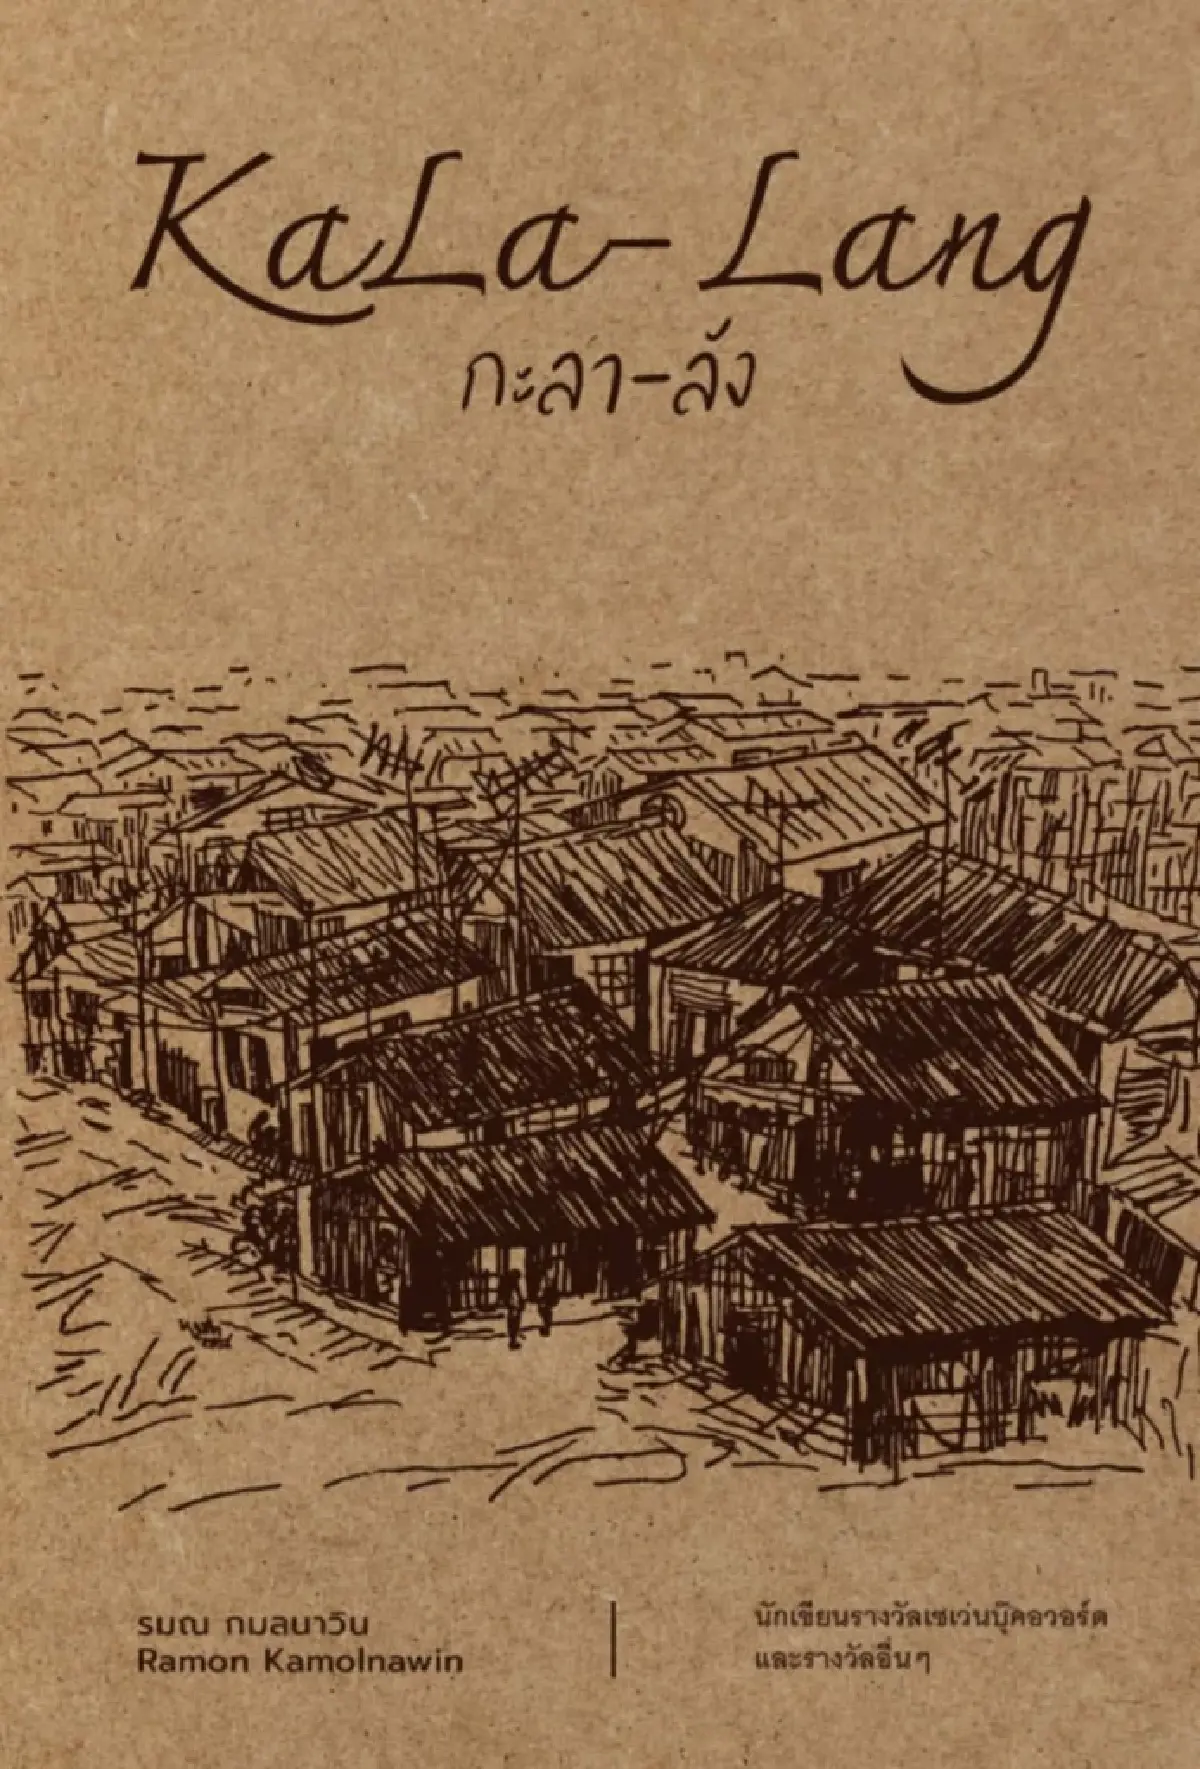 KaLa-Lang
กะลา-ลัง
รมณ กมลนาวิน
Ramon Kamolnawin
นักเขียนรางวัลเซเว่นบุ๊คอวอร์ด
และรางวัลอื่นๆ